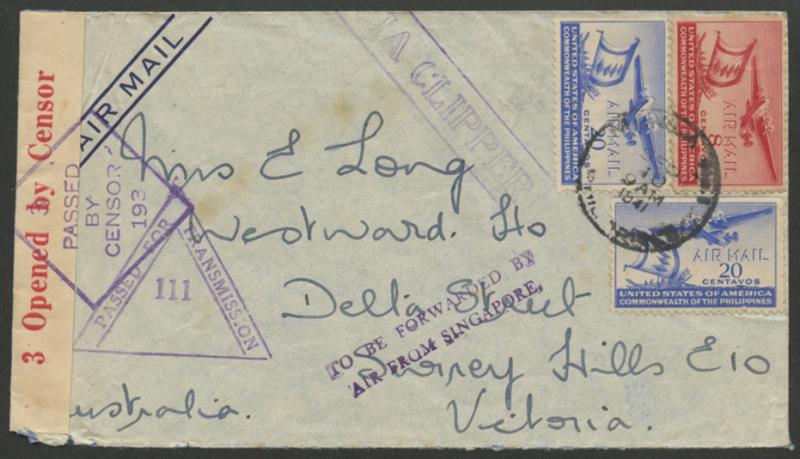 3 Opened by Censor
AIR MAIL
VIA CLIPPER
PASSED
BY
CENSOR
193
PASSED FOR TRANSMISSION
111
Mrs E Long
Westward Ho
Delta Street
Surrey Hills E10
Victoria.
Australia.
TO BE FORWARDED BY
AIR FROM SINGAPORE.
UNITED STATES OF AMERICA
COMMONWEALTH OF THE PHILIPPINES
AIR MAIL
20
CENTAVOS
UNITED STATES OF AMERICA
COMMONWEALTH OF THE PHILIPPINES
AIR MAIL
8
CENTAVOS
UNITED STATES OF AMERICA
COMMONWEALTH OF THE PHILIPPINES
AIR MAIL
20
CENTAVOS
9 AM
1941